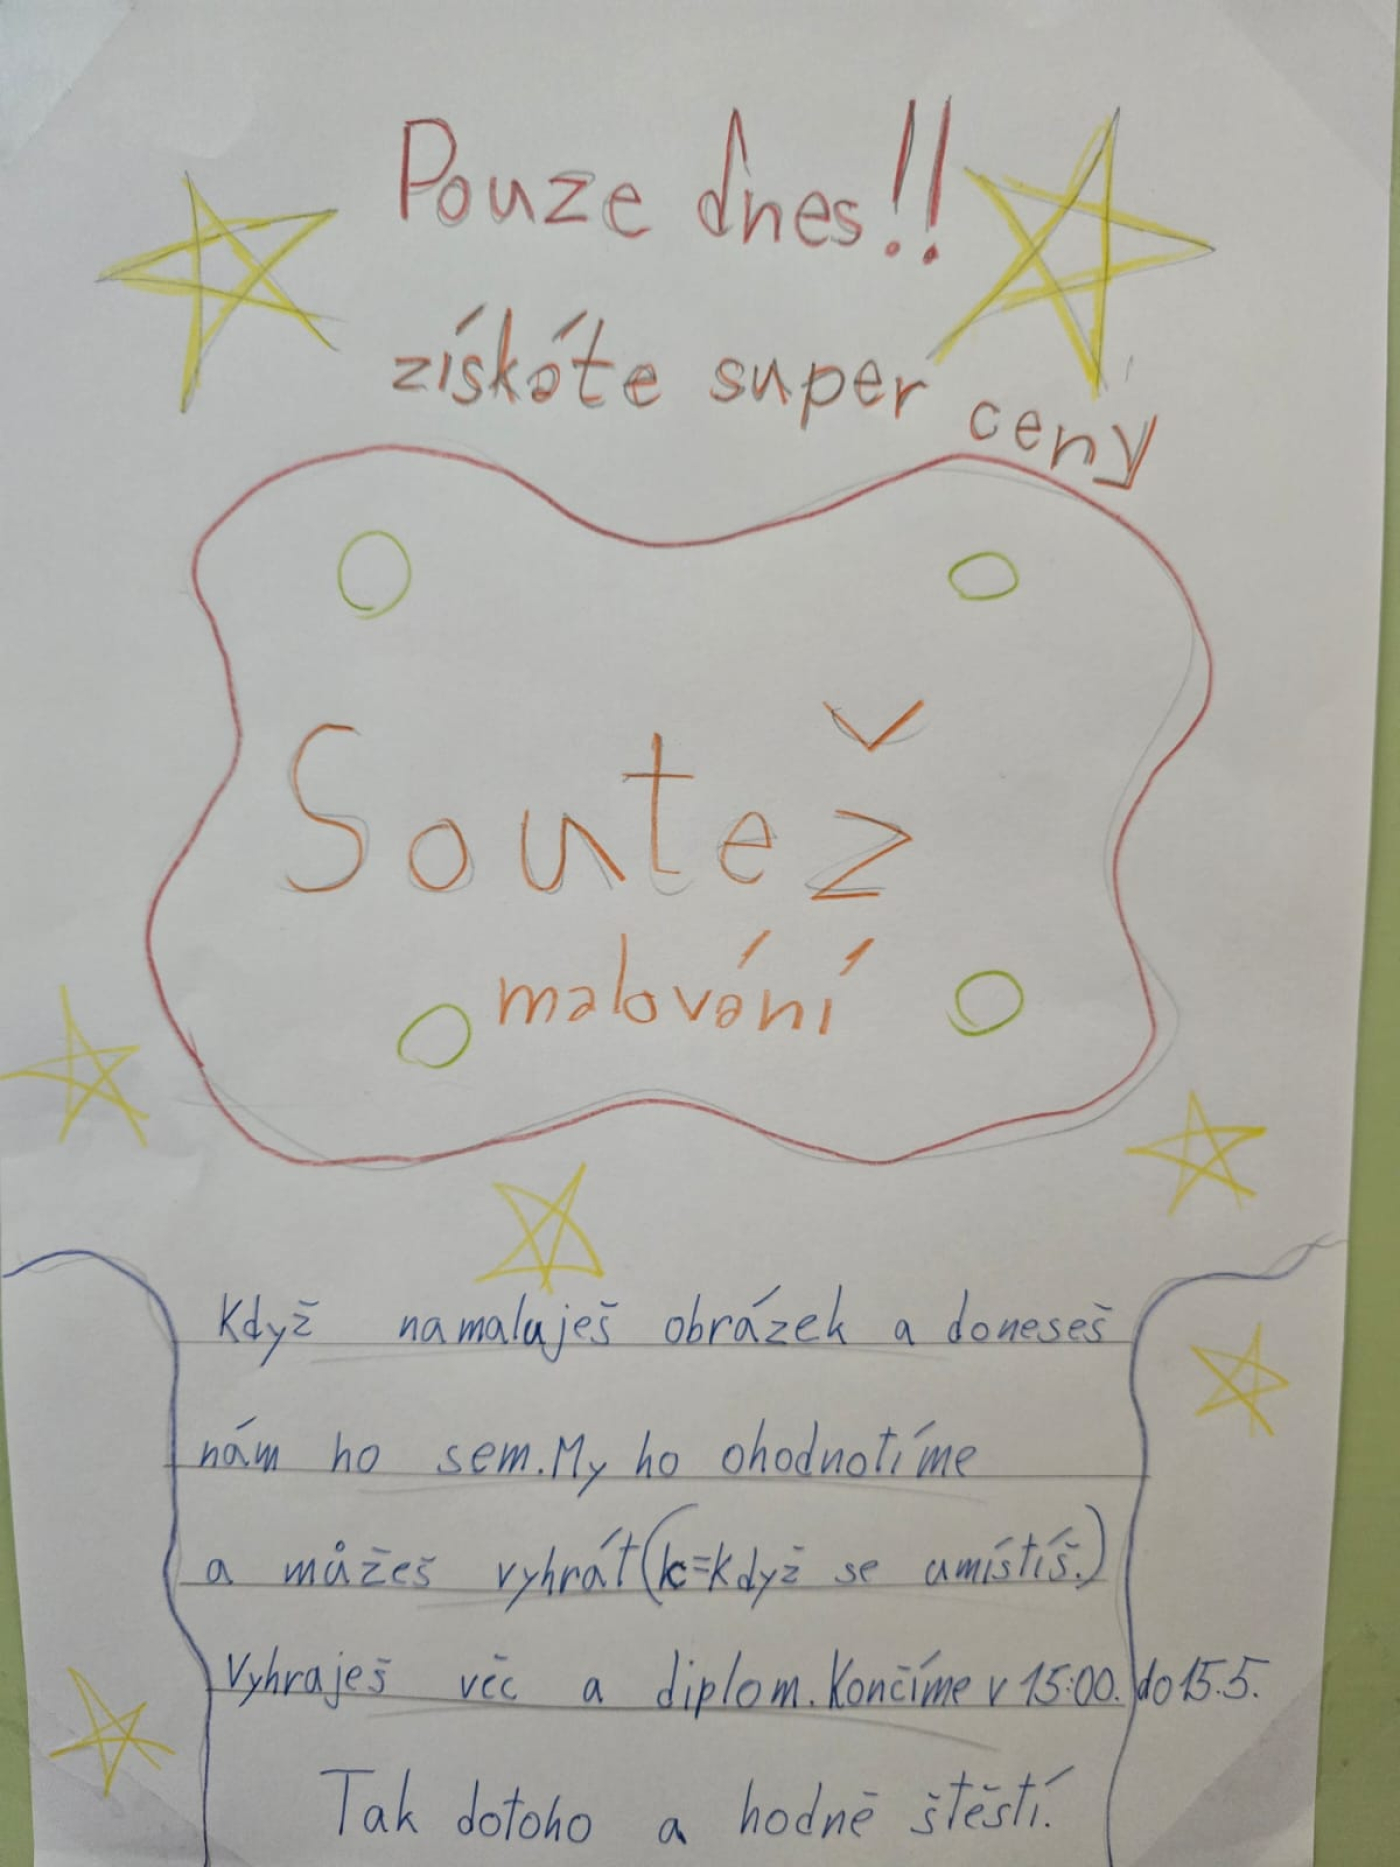 Pouze dnes!!
získáte super ceny
Soutež
malování
Když namaluješ obrázek a doneseš
nám ho sem. My ho ohodnotíme
a můžeš vyhrát (k=když se umístíš.)
Vyhraješ věc a diplom. Končíme v 15:00. do 15.5.
Tak dotoho a hodně štěstí.